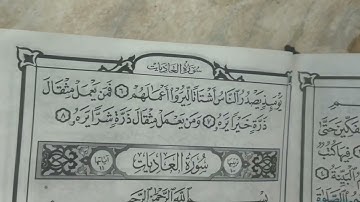 سُورَةُ العَادِيَات
يَوْمَئِذٍ يَصْدُرُ ٱلنَّاسُ أَشْتَاتًا لِّيُرَوْا۟ أَعْمَٰلَهُمْ ٦ فَمَن يَعْمَلْ مِثْقَالَ
ذَرَّةٍ خَيْرًا يَرَهُۥ ٧ وَمَن يَعْمَلْ مِثْقَالَ ذَرَّةٍ شَرًّا يَرَهُۥ ٨
سُورَةُ العَادِيَات
بِسْمِ ٱللَّهِ ٱلرَّحْمَٰنِ ٱلرَّحِيمِ